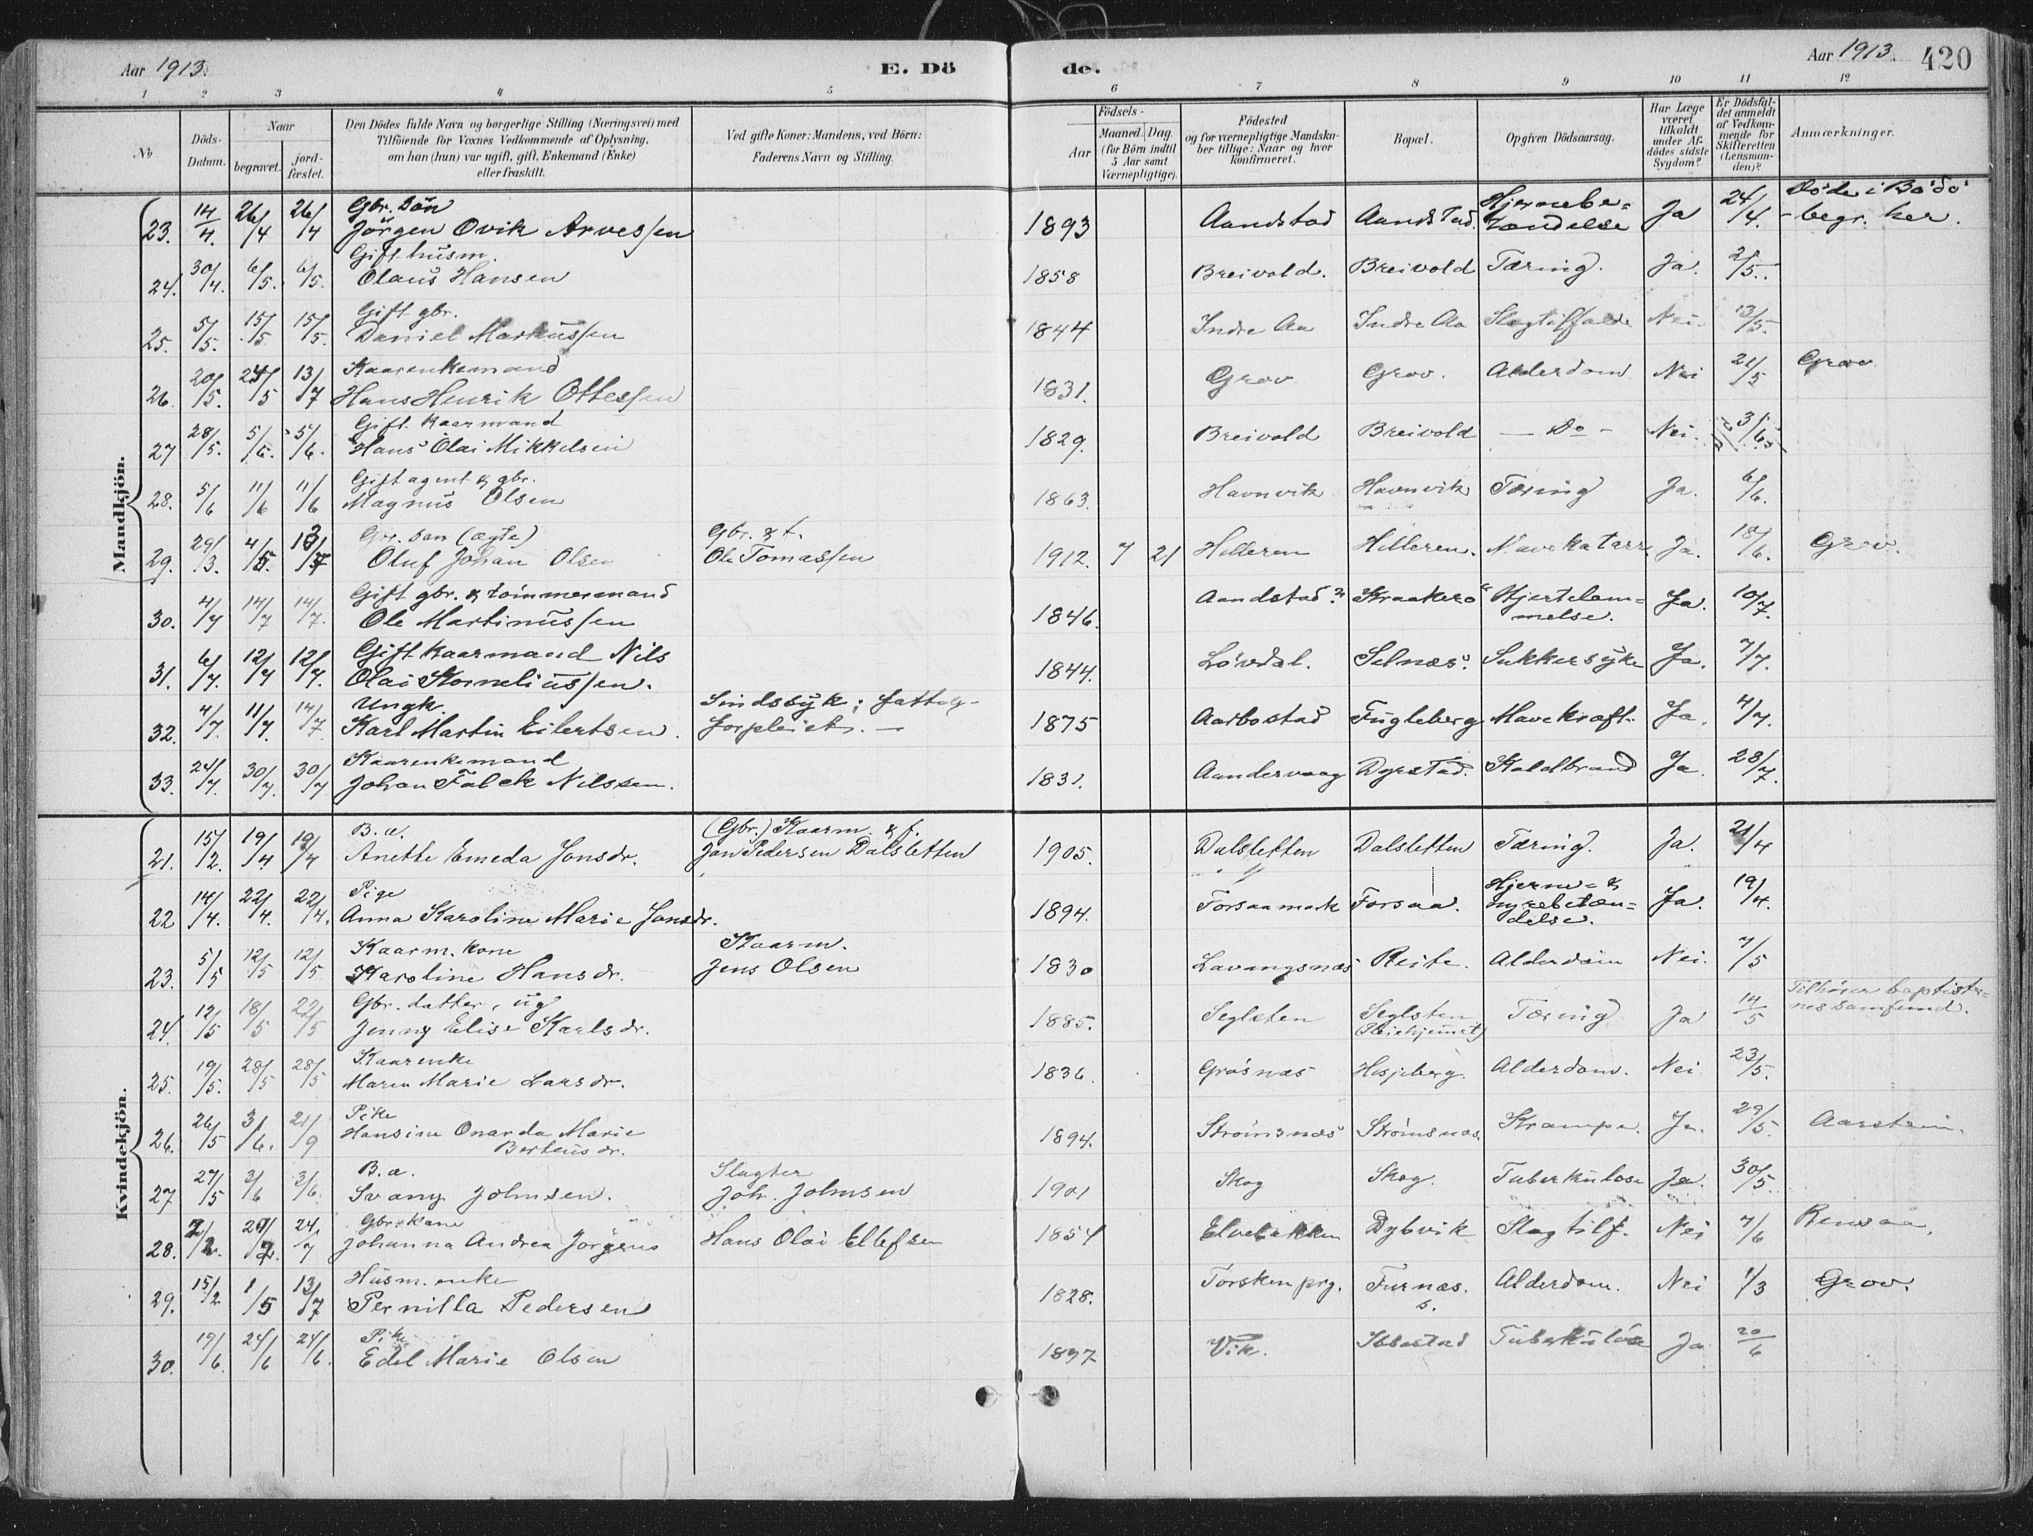 Aar 1913.
E. Dö
de.
Aar 1913.
420
1 2 3 4 5 6 7 8 9 10 11 12
No
Döds-Datum.
Naar
begravet.
jord-fæstet.
Den Dödes fulde Navn og borgerlige Stilling (Næringsvei) med
Tilföiende for Voxnes Vedkommende af Oplysning,
om han (hun) var ugift, gift, Enkemand (Enke)
eller fraskilt.
Ved gifte Koner: Mandens, ved Börn:
Faderens Navn og Stilling.
Födsels-
Aar
Maaned. Dag.
(for Börn indtil
5 Aar samt
Værnepligtige).
Födested
og for værnepligtige Mandska-
ber tillige: Naar og hvor
konfirmeret.
Bopæl.
Opgiven Dödsaarsag.
Har Læge
været
tilkaldt
under Af-
dödes sidste
Sygdom?
Er Dödsfal-
det anmeldt
af Vedkom-
mende for
Skifteretten
(Lensman-
den)?
Anmærkninger.
Mandkjön.
23. 14/4. 26/4 26/4 Gbr. sön
Jörgen Ovik Arvessen 1893 Aandstad Aandstad. Hjernebe-
tændelse Ja 24/4. Döde i Bodö
- begr. her.
24. 30/4. 6/5. 6/5. Gift husm.
Olaus Hansen 1858 Breivold. Breivold Tæring. Ja. 2/5.
25. 5/5. 15/5 15/5. Gift gbr.
Daniel Markussen 1844 Indre Aa Indre Aa Slagtilfælde Nei. 13/5.
26. 20/5. 25/5 13/7 Kaarenkemand
Hans Henrik Ottessen 1831. Grov Grov. Alderdom Nei 21/5 Grov
27 28/5. 5/6. 5/6. Gift kaarmand
Hans Olai Mikkelsen 1829. Breivold Breivold — Do - Nei. 3/6
28. 5/6 11/6 11/6 Gift agent & gbr.
Magnus Olsen 1863. Havnvik Havnvik Tæring Ja. 6/6.
29. 29/3. 4/5. 13/7 Gbr. søn (ægte)
Oluf Johan Olsen Gbr. & f.
Ole Tomassen 1912. 7 21 Helleren Helleren. Mavekatarr Ja. 18/6. Grov.
30. 4/7 14/7 14/7. Gift gbr. & tömmermand
Ole Martinussen 1846. Aandstad? Kraakerö Hjertelam-
melse. Ja. 10/7.
31. 6/7. 12/7 12/7. Gift kaarmand Nils
Olai Korneliussen. 1844. Lövdal. Selnæs. Sukkersyke Ja. 7/7.
32. 4/7. 11/7. 14/7 Ungk.
Karl Martin Eilertsen. Sindssyk; fattig-
forpleiet. — 1875 Aarbostad Fugleberg Mavekræft. Ja. 4/7.
33. 24/7. 30/7. 30/7 Kaarenkemand
Johan Falck Nilssen. 1831. Aandervaag Dyrstad. Koldbrand Ja. 28/7.
Kvindekjön.
21. 15/2. 19/4. 19/4 B. æ.
Anette Emeda Jonsdr. (Gbr.) Kaarm. & f.
Jon Pedersen Dalsletten 1905. Dalsletten Dalsletten Tæring. Ja. 21/4
22 14/4. 22/4. 22/4. Pige
Anna Karoline Marie Jonsdr. 1894. Forsaamark Forsaa. Hjerne- &
nyrebetæn-
delse. Ja. 19/4.
23. 5/5 12/5 12/5 Kaarm. kone
Karoline Hansdr. Kaarm.
Jens Olsen 1830 Lavangsnæs Reite. Alderdom Nei. 7/5
24. 12/5 18/5 22/5 Gbr. datter, ug
Jenny Elise Karlsdr. 1885. Seglsten Seglsten
(Pleiehjemmet) Tæring Ja 14/5 Tilhörer baptister-
nes samfund.
25. 19/5. 28/5 28/5 Kaarenke
Maren Marie Larsdr. 1836. Grasnæs Hesjeberg. Alderdom. Nei 23/5.
26. 26/5 3/6. 21/9 Pike
Hansine Onarda Marie
Berteusdr. 1894. Strömsnæs Strömsnæs. Krampe. Ja. 29/5. Aarstein.
27 27/5 3/6 3/6. B. æ.
Svany Johnsen. Slagter
Joh. Johnsen 1901 Skog Skog. Tuberkulose Ja. 30/5.
28. 24/7 Gbr. kone
Johanna Andrea Jörgens Hans Olai Ellefsen 1854 Elvebakken Dybvik Slagtilf. Nei 7/6 Rensaa.
29. 15/2 1/5 13/7 Husm. enke
Pernilla Pedersen 1828. Torsken prg. Furnæs. Alderdom. Nei 1/3 Grov.
30. 19/6. 24/6 24/6. Pike
Edel Marie Olsen 1897 Vik. Ibbestad Tuberkulose Ja 20/6